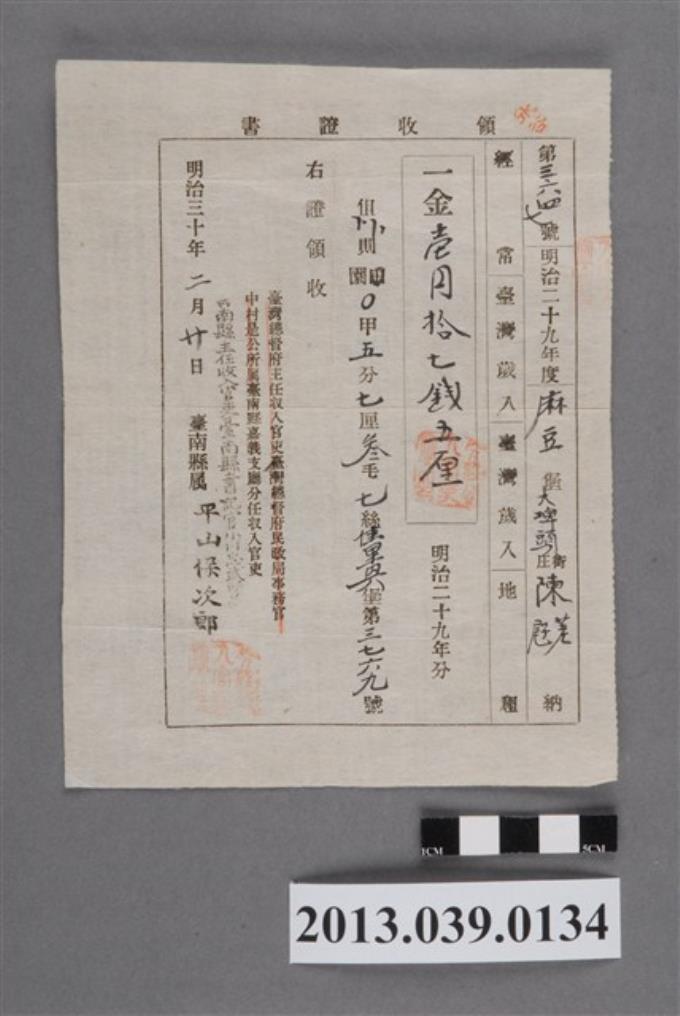 領收證書
第三六四七號 明治二十九年度 麻豆堡大埤頭街庄 陳 納
經常 臺灣歲入 臺灣歲入 地租
一金壹円拾七錢五厘
明治二十九年分
但 則 園 0甲五分七厘叁毛七絲 堡第三七六九號
右證領收
臺灣總督府主任収入官吏臺灣總督府民政局事務官
中村是公所属臺南縣嘉義支廳分任収入官吏
明治三十年二月廿日 臺南縣属 平山保次郎
1CM
5CM
2013.039.0134